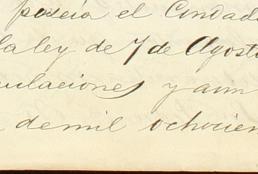 poseia el Condado
la ley de 7 de Agosto
ulaciones y aun
de mil ochocien